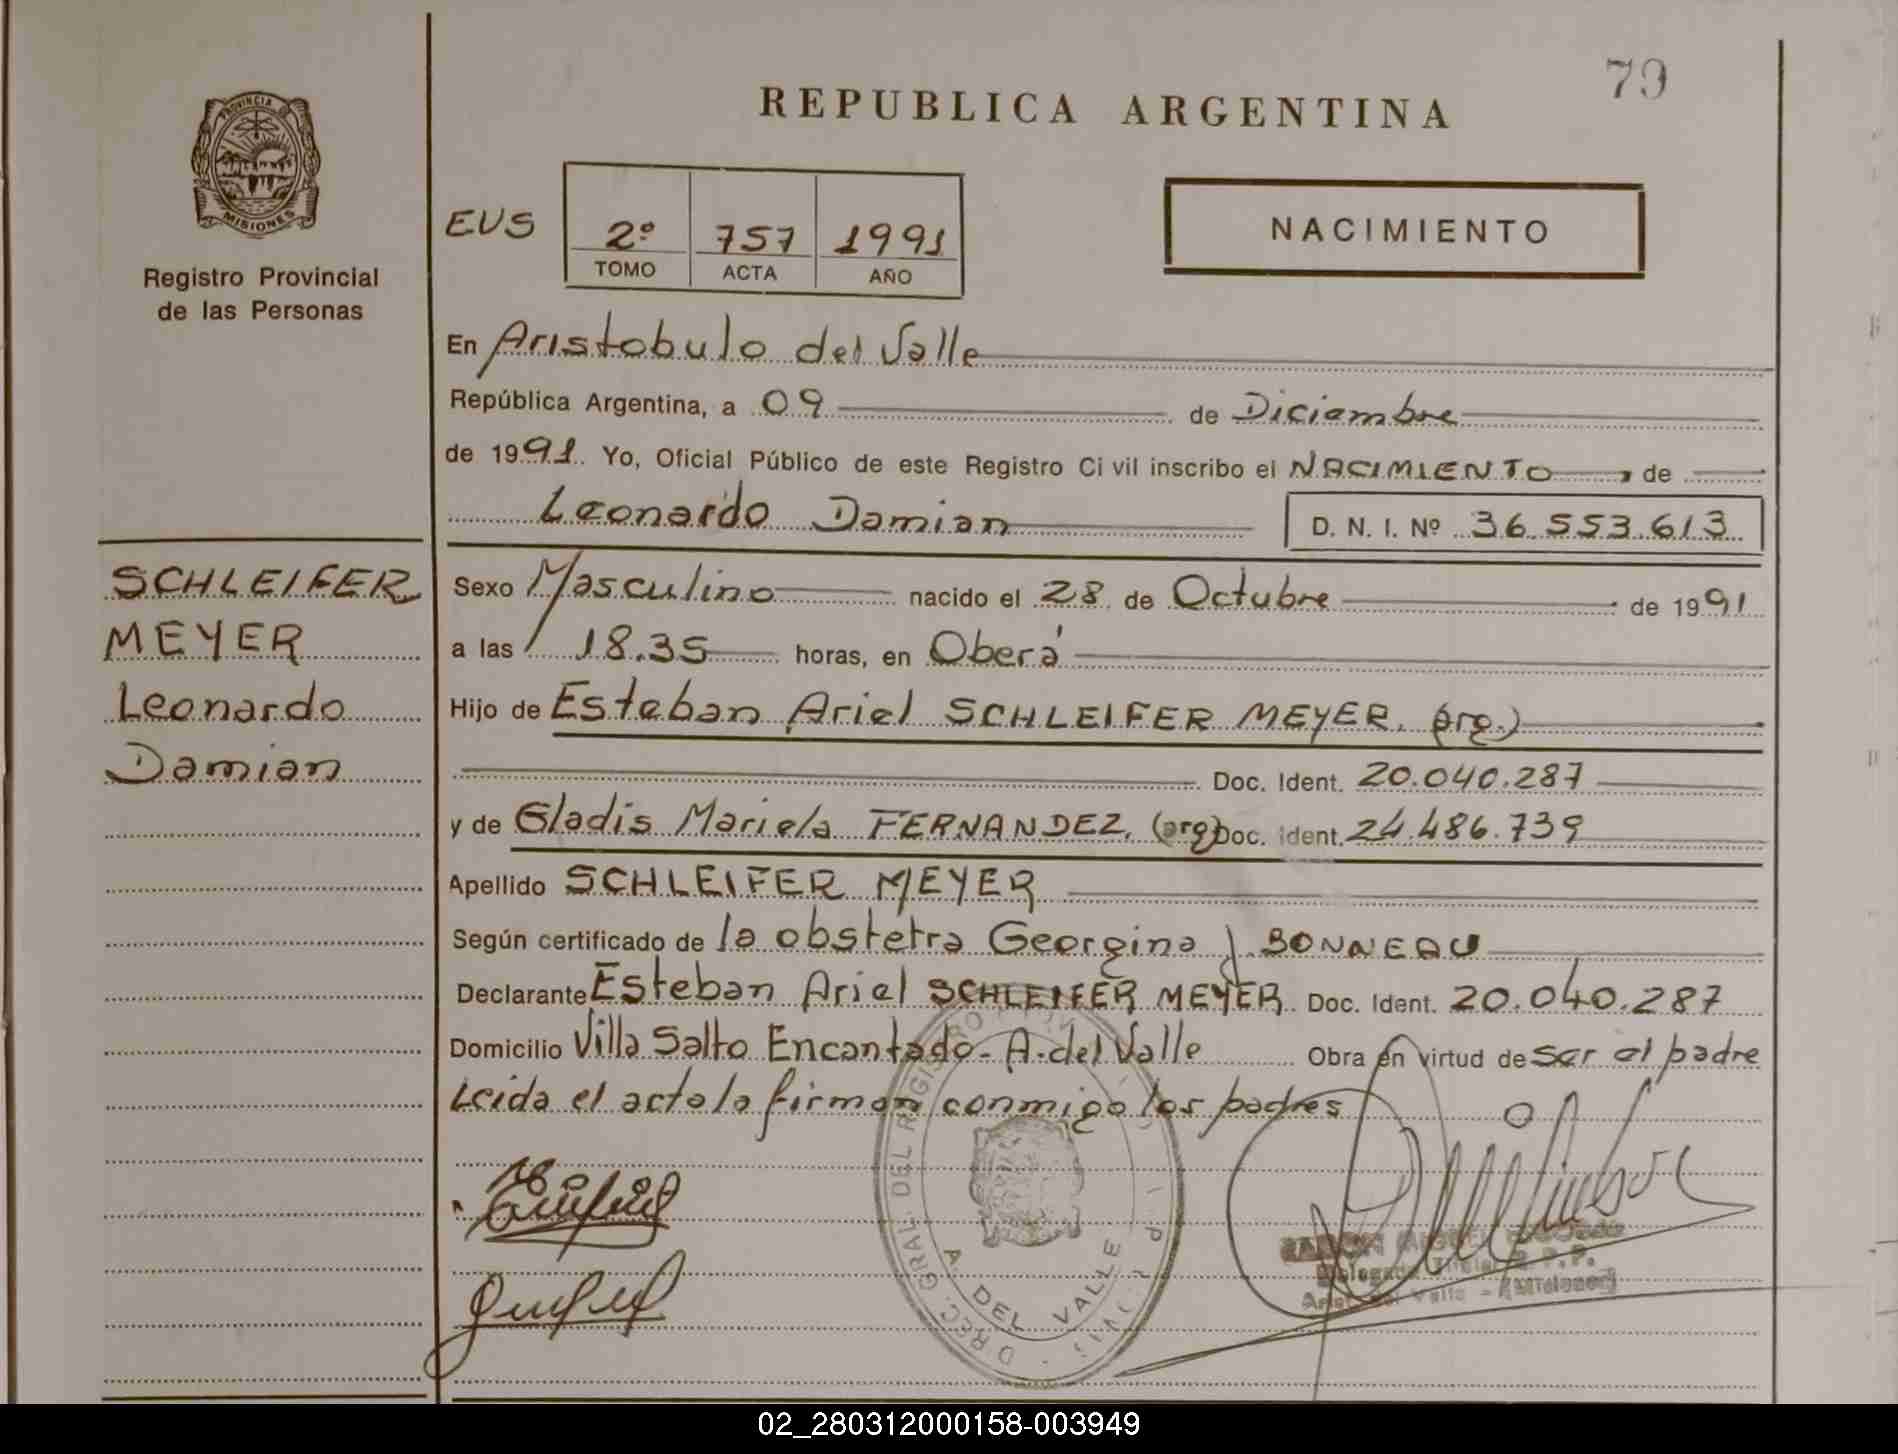 79
REPUBLICA ARGENTINA
PROVINCIA DE
MISIONES
Registro Provincial
de las Personas
EUS
2º 757 1991
TOMO ACTA AÑO
NACIMIENTO
En Aristobulo del Valle
República Argentina, a 09 de Diciembre
de 1991. Yo, Oficial Público de este Registro Civil inscribo el NACIMIENTO, de
Leonardo Damian D. N. I. Nº 36.553.613
SCHLEIFER
MEYER
Leonardo
Damian
Sexo Masculino nacido el 28 de Octubre de 1991
a las 18.35 horas, en Oberá
Hijo de Esteban Ariel SCHLEIFER MEYER. (arg.)
Doc. Ident. 20.040.287
y de Gladis Mariela FERNANDEZ, (arg) Doc. Ident. 24.486.739
Apellido SCHLEIFER MEYER
Según certificado de la obstetra Georgina J. BONNEAU
Declarante Esteban Ariel SCHLEIFER MEYER Doc. Ident. 20.040.287
Domicilio Villa Salto Encantado- A. del Valle Obra en virtud de ser el padre
Leida el acta la firman conmigo los padres
DREC. GRAL. DEL REGISTRO
A. DEL VALLE
02_280312000158-003949